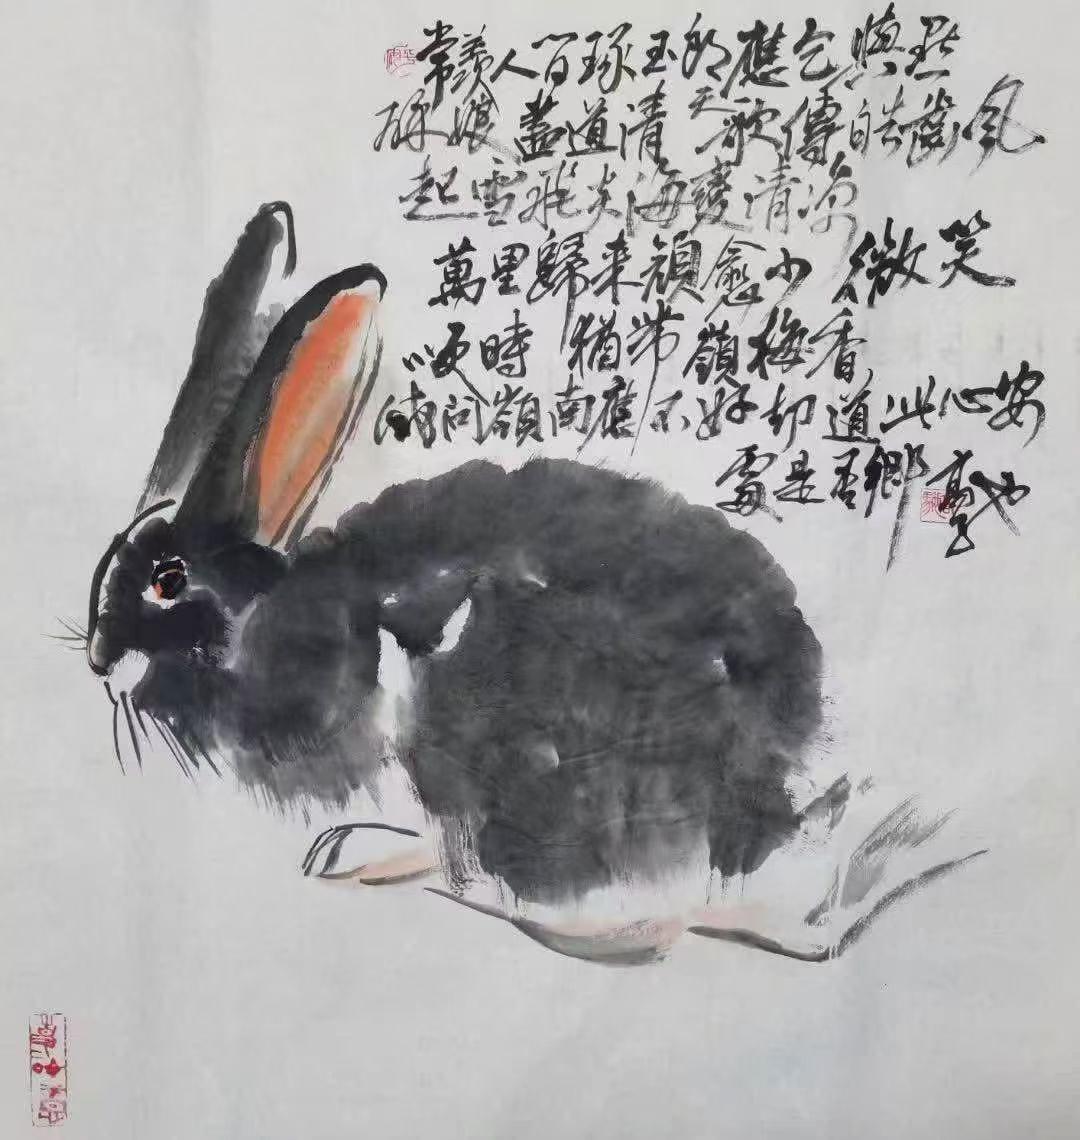 常羨人間琢玉郎天應乞與點
酥娘盡道清歌傳皓齒風
起雪飛炎海變清涼
萬里歸来顔愈小微笑
笑時猶帶嶺梅香
試問嶺南應不好却道此心安
處是吾鄉